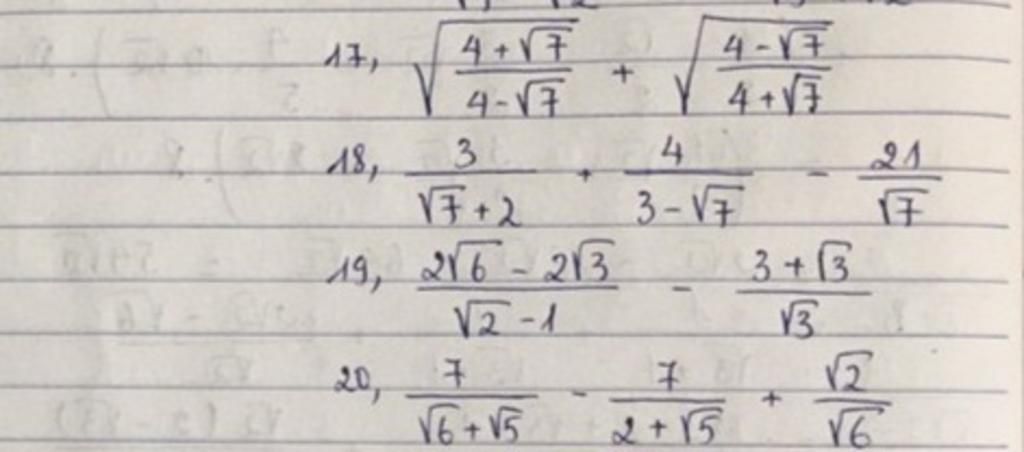 17, √((4+√7)/(4-√7)) + √((4-√7)/(4+√7))
18, 3/(√7+2) + 4/(3-√7) - 21/√7
19, (2√6 - 2√3)/(√2-1) - (3+√3)/√3
20, 7/(√6+√5) - 7/(2+√5) + √2/√6